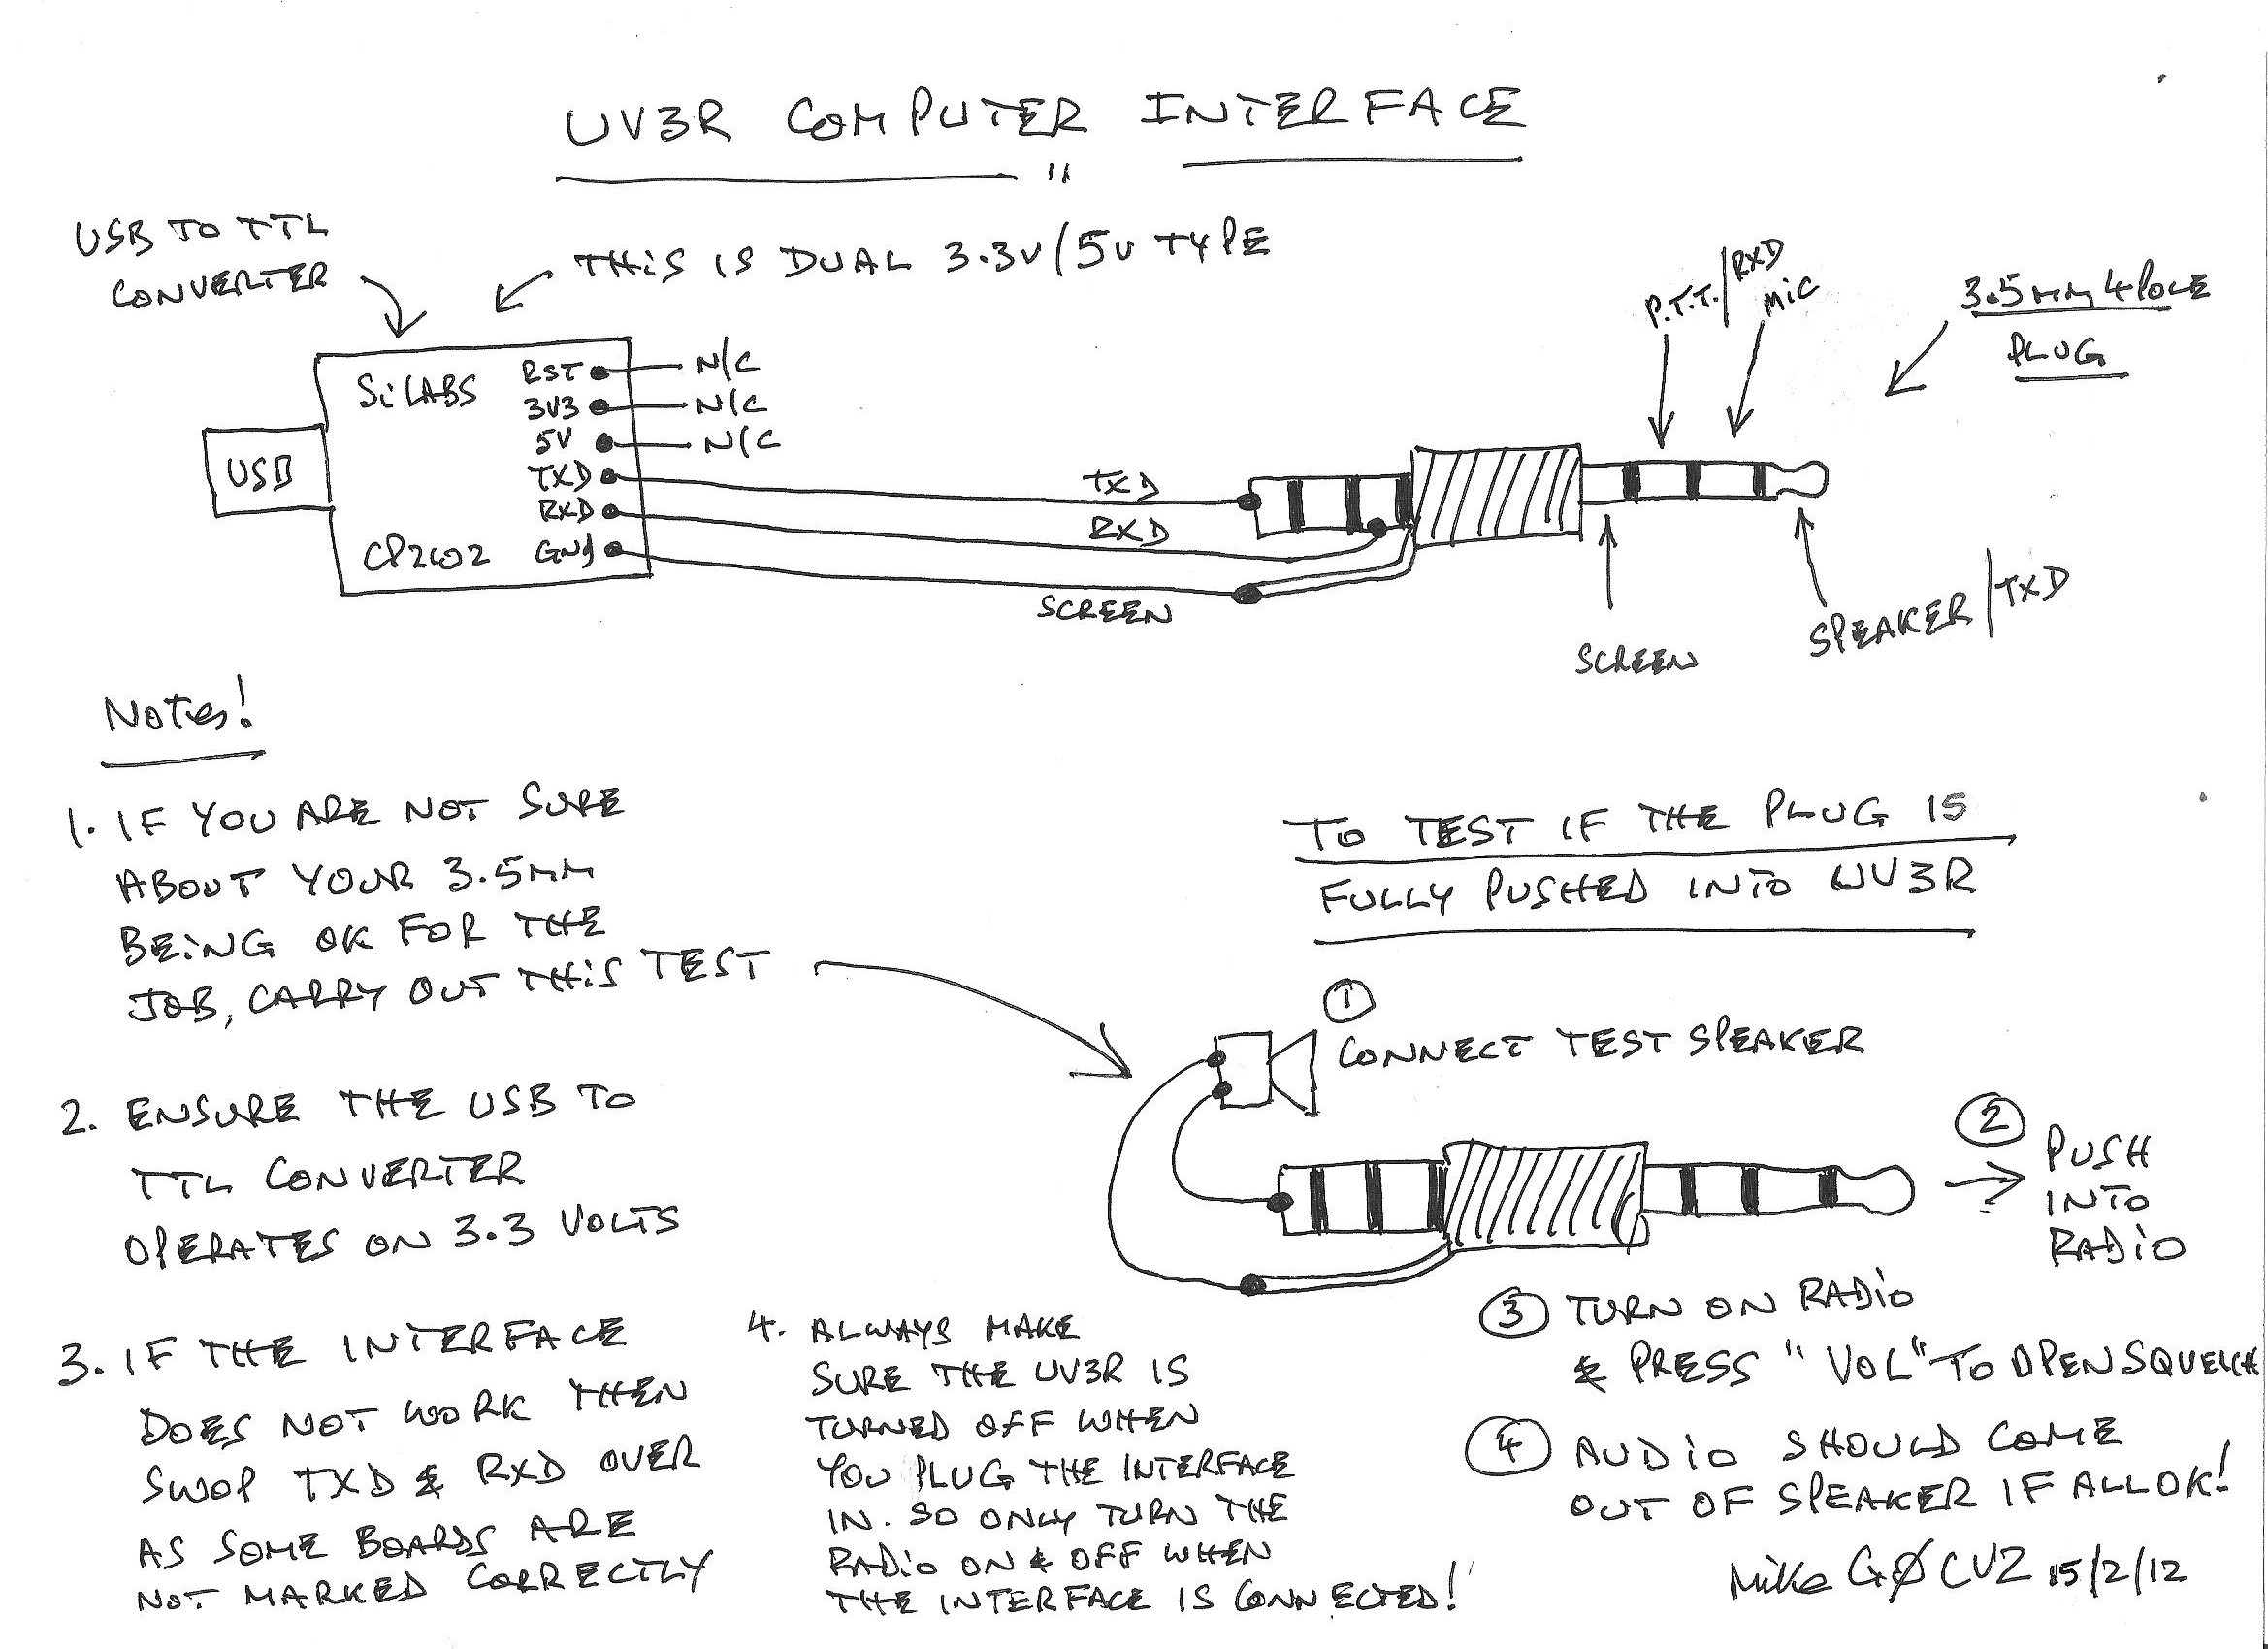 UV3R COMPUTER INTERFACE
"
USB TO TTL
CONVERTER
THIS IS DUAL 3.3V/5V TYPE
P.T.T./RXD
MIC
3.5mm 4 POLE
PLUG
SiLABS
CP2102
USB
RST
N/C
3V3
N/C
5V
N/C
TXD
RXD
GND
TXD
RXD
SCREEN
SCREEN
SPEAKER/TXD
Notes!
1. IF YOU ARE NOT SURE
ABOUT YOUR 3.5mm
BEING OK FOR THE
JOB, CARRY OUT THIS TEST
2. ENSURE THE USB TO
TTL CONVERTER
OPERATES ON 3.3 VOLTS
3. IF THE INTERFACE
DOES NOT WORK THEN
SWOP TXD & RXD OVER
AS SOME BOARDS ARE
NOT MARKED CORRECTLY
4. ALWAYS MAKE
SURE THE UV3R IS
TURNED OFF WHEN
YOU PLUG THE INTERFACE
IN. SO ONLY TURN THE
RADIO ON & OFF WHEN
THE INTERFACE IS CONNECTED!
TO TEST IF THE PLUG IS
FULLY PUSHED INTO UV3R
1
CONNECT TEST SPEAKER
2
PUSH
INTO
RADIO
3 TURN ON RADIO
& PRESS "VOL" TO OPEN SQUELCH
4 AUDIO SHOULD COME
OUT OF SPEAKER IF ALL OK!
Mike GØCVZ 15/2/12